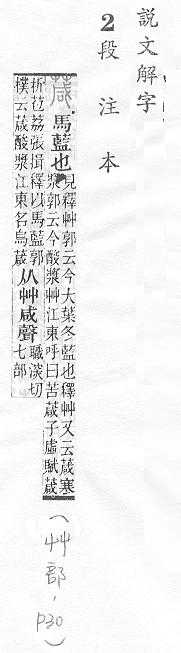 說文解字
2段注本
葴 馬藍也
見釋艸郭云今大葉冬藍也釋艸又云葴寒
漿郭云今酸漿艸江東呼曰苦葴子虛賦葴
析苞荔張揖釋以馬藍郭
樸云葴酸漿江東名烏葴
从艸咸聲
職淡切
七部
(艸部,P30)